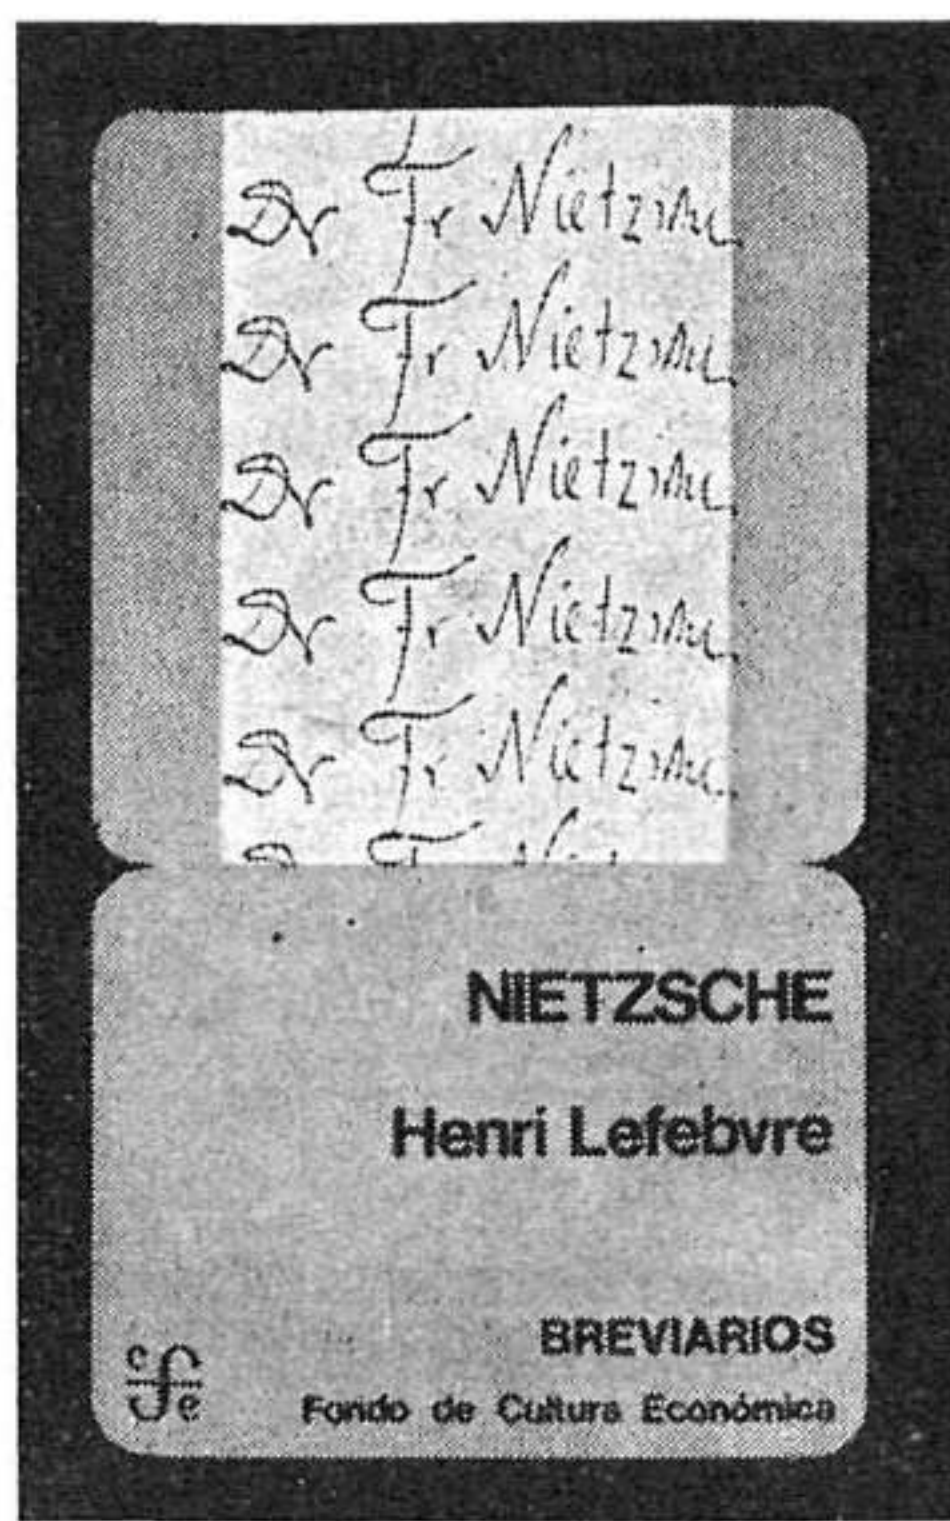 Dr Fr Nietzsche
Dr Fr Nietzsche
Dr Fr Nietzsche
Dr Fr Nietzsche
Dr Fr Nietzsche
NIETZSCHE
Henri Lefebvre
BREVIARIOS
cfe
Fondo de Cultura Económica